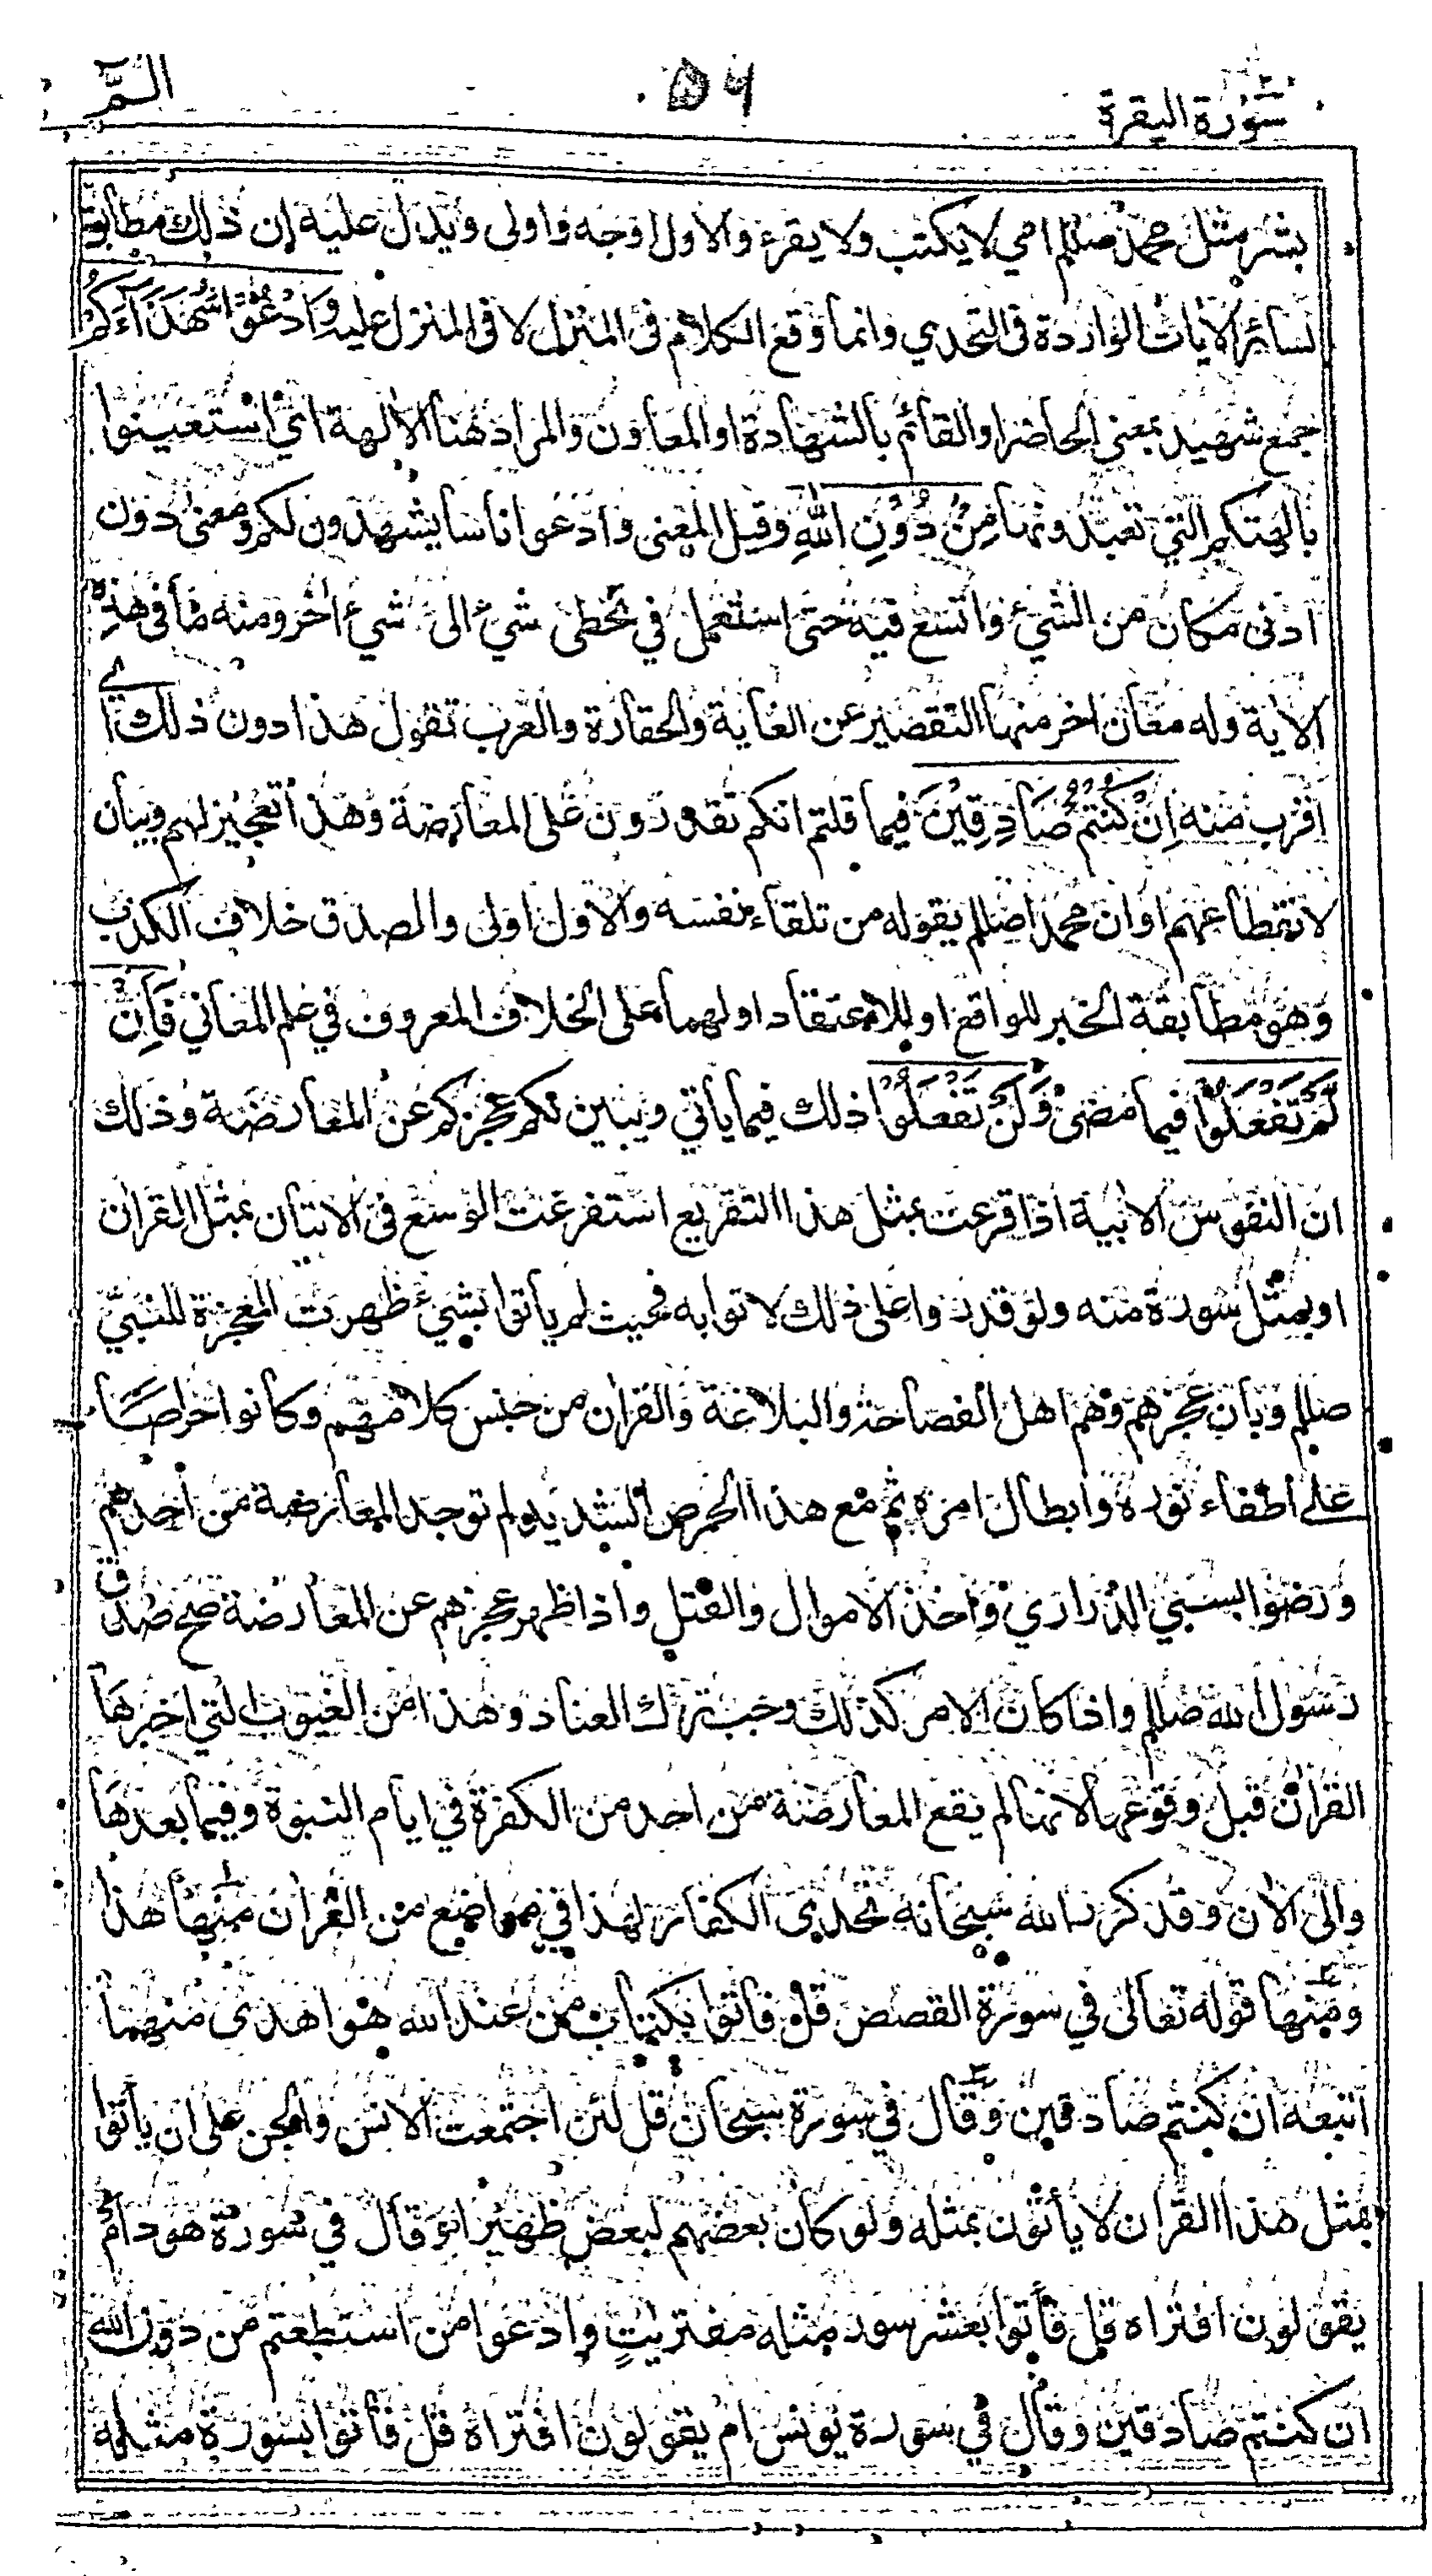 سورة البقرة ٥٦ الـمّ
بشر مثل محمد صللم امي لا يكتب ولا يقرء والاول اوجه واولى ويدل عليه ان ذلك مطابق
لسائر الآيات الواردة في التحدي وانما وقع الكلام في المنزل لا في المنزل عليه وَادْعُوْا شُهَدَآءَكُمْ
جمع شهيد بمعنى الحاضر او القائم بالشهادة او المعاون والمراد هنا الآلهة اي استعينوا
بآلهتكم التي تعبدونها مِنْ دُوْنِ اللّٰهِ وقيل المعنى وادعوا ناسا يشهدون لكم ومعنى دون
ادنى مكان من الشيء واتسع فيه حتى استعمل في تخطى شيء الى شيء اخر ومنه ما في هذه
الآية وله معان اخر منها التقصير عن الغاية والحقارة والعرب تقول هذا دون ذلك اي
اقرب منه اِنْ كُنْتُمْ صَادِقِيْنَ فيما قلتم انكم تقدرون على المعارضة وهذا تعجيز لهم وبيان
لانقطاعهم او ان محمدا صللم يقوله من تلقاء نفسه والاول اولى والصدق خلاف الكذب
وهو مطابقة الخبر للواقع او للاعتقاد او لهما على الخلاف المعروف في علم المعاني فَاِنْ
لَّمْ تَفْعَلُوْا فيما مضى وَلَنْ تَفْعَلُوْا ذلك فيما يأتي ويبين لكم عجزكم عن المعارضة وذلك
ان النفوس الابية اذا قرعت بمثل هذا التقريع استفرغت الوسع في الاتيان بمثل القرآن
او بمثل سورة منه ولو قدروا على ذلك لاتوا به فحيث لم يأتوا بشيء ظهرت المعجزة للنبي
صللم وبان عجزهم وهم اهل الفصاحة والبلاغة والقرآن من جنس كلامهم وكانوا حراصا
على اطفاء نوره وابطال امره ثم مع هذا الحرص الشديد لم توجد المعارضة من احدهم
ورضوا بسبي الذراري واخذ الاموال والقتل واذا ظهر عجزهم عن المعارضة صح صدق
رسول الله صللم واذا كان الامر كذلك وجب ترك العناد وهذا من الغيوب التي اخبر بها
القرآن قبل وقوعها لانها لم يقع المعارضة من احد من الكفرة في ايام النبوة وفيما بعدها
والى الآن وقد ذكر الله سبحانه تحدى الكفار بهذا في مواضع من القرآن منها هذا
ومنها قوله تعالى في سورة القصص قل فأتوا بكتاب من عند الله هو اهدى منهما
اتبعه ان كنتم صادقين وقال في سورة سبحان قل لئن اجتمعت الانس والجن على ان يأتوا
بمثل هذا القرآن لا يأتون بمثله ولو كان بعضهم لبعض ظهيرا وقال في سورة هود ام
يقولون افتراه قل فأتوا بعشر سور مثله مفتريٰتٍ وادعوا من استطعتم من دون الله
ان كنتم صادقين وقال في سورة يونس ام يقولون افتراه قل فأتوا بسورة مثله